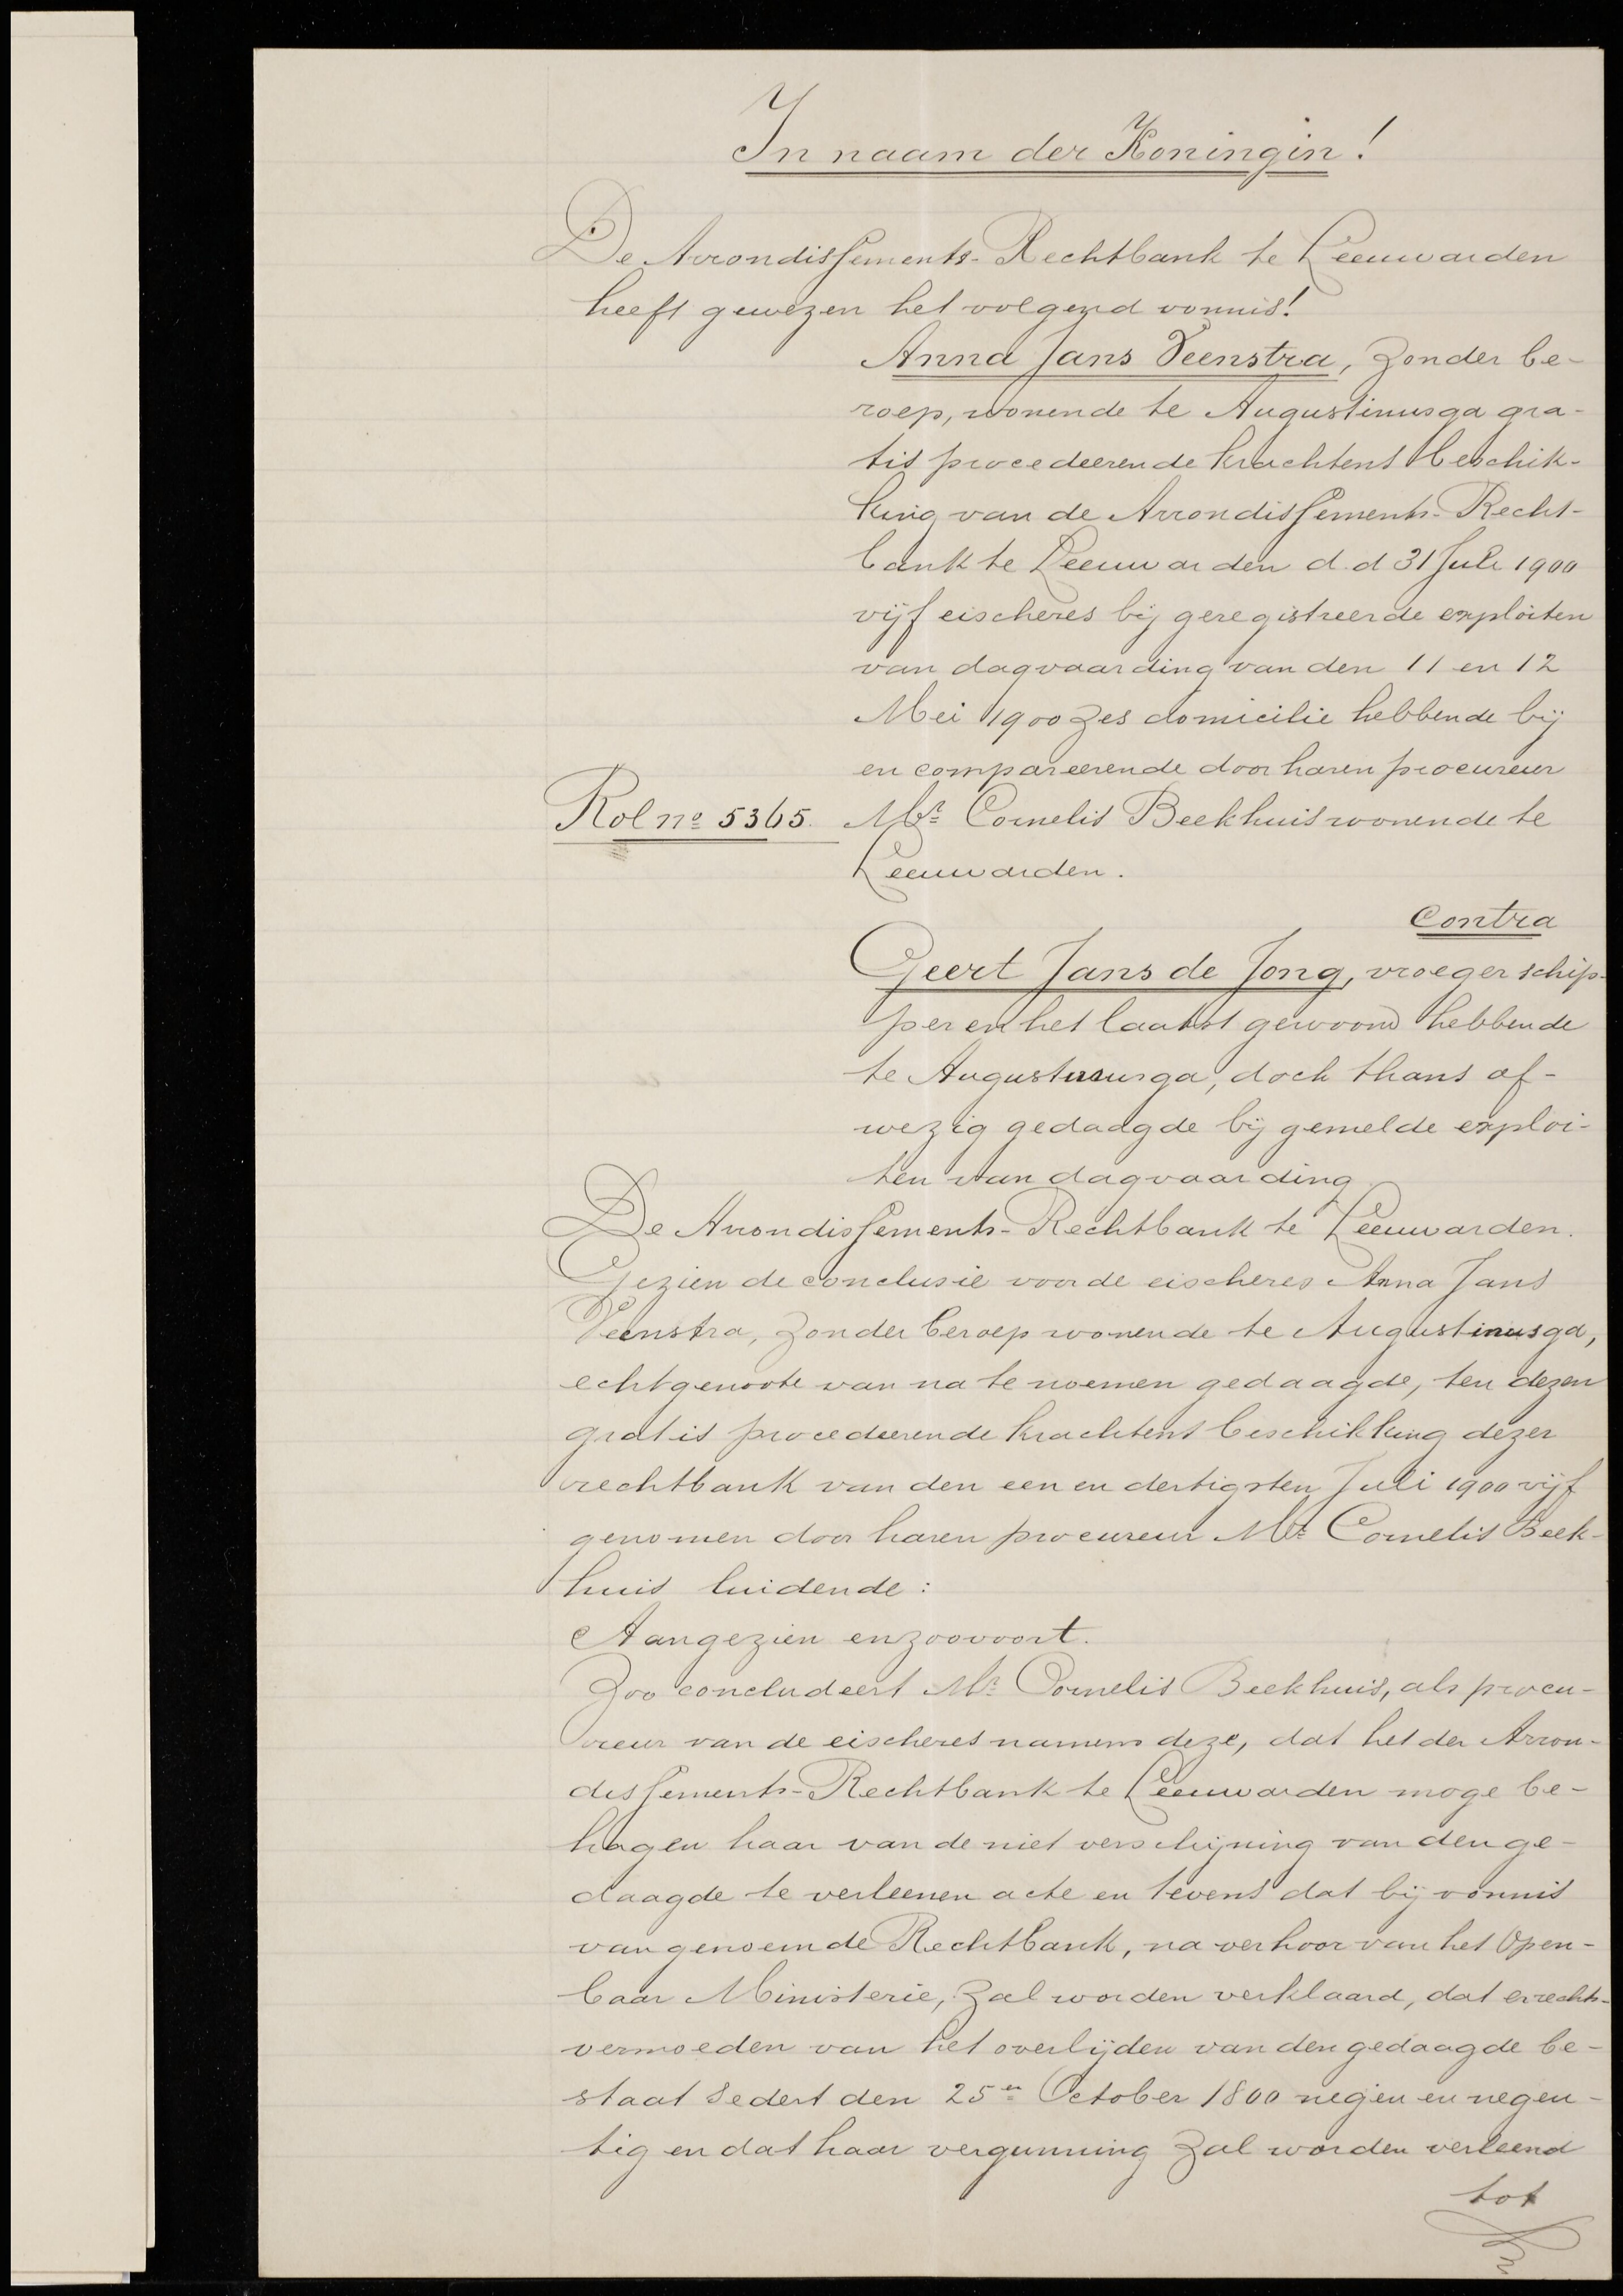 In naam der Koningin!
De Arrondissements-Rechtbank te Leeuwarden
heeft gewezen het volgend vonnis!
Anna Jans Veenstra, zonder be-
roep, wonende te Augustinusga gra-
tis procedeerende krachtens beschik-
king van de Arrondissements-Recht-
bank te Leeuwarden d.d 31 Juli 1900
vijf eischeres bij geregistreerde exploiten
van dagvaarding van den 11 en 12
Mei 1900 zes domicilie hebbende bij
en compareerende door haren procureur
Rol no 5365. Mr. Cornelis Beekhuis wonende te
Leeuwarden.
Contra
Geert Jans de Jong, vroeger schip-
per en het laatst gewoond hebbende
te Augustinusga, doch thans af-
wezig gedaagde bij gemelde exploi-
ten van dagvaarding
De Arrondissements-Rechtbank te Leeuwarden.
Gezien de conclusie voor de eischeres Anna Jans
Veenstra, zonder beroep wonende te Augustinusga,
echtgenoote van na te noemen gedaagde, ten dezen
gratis procedeerende krachtens beschikking dezer
rechtbank van den een en dertigsten Juli 1900 vijf
genomen door haren procureur Mr. Cornelis Beek-
huis luidende:
Aangezien enzoovoort.
Zoo concludeert Mr. Cornelis Beekhuis, als procu-
reur van de eischeres namens deze, dat het der Arron-
dissements-Rechtbank te Leeuwarden moge be-
hagen haar van de niet verschijning van den ge-
daagde te verleenen acte en tevens dat bij vonnis
van genoemde Rechtbank, na verhoor van het Open-
baar Ministerie, zal worden verklaard, dat er rechts-
vermoeden van het overlijden van den gedaagde be-
staat sedert den 25en October 1800 negen en negen-
tig en dat haar vergunning zal worden verleend
tot